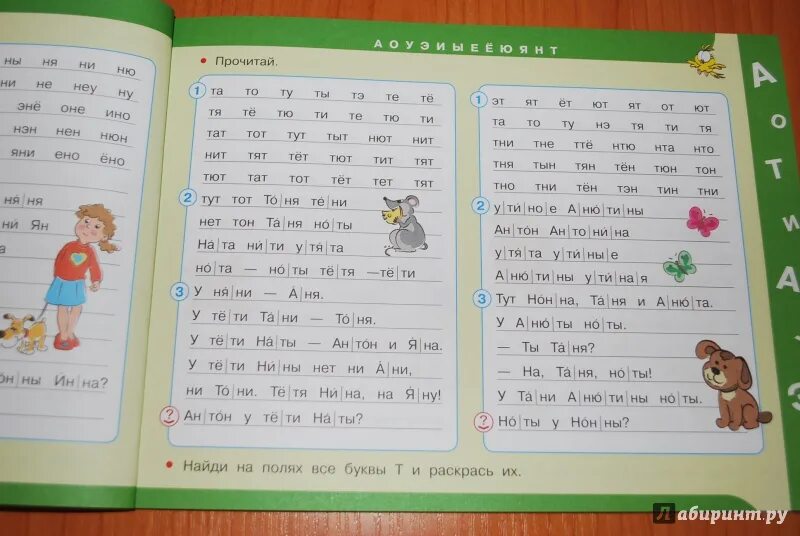 ны ня ни ню
ни не неу ну
энё оне ино
нэн нен нюн
яни ено ёно
ня|ня
ни́ Ян
а
о́н|ны И́н|на?
АОУЭИЫЕЁЮЯНТ
• Прочитай.
1 та то ту ты тэ те тё
тя тё тю ти те тю ти
тат тот тут тыт нют нит
нит тят тёт тют тит тят
тют тат тот тёт тет тят
2 тут тот То́|ня те́|ни
нет тон Та́|ня но́|ты
На́|та ни́|ти у|тя́|та
но́|та — но́|ты тё|тя —тё|ти
3 У ня́|ни — А́|ня.
У тё|ти Та́|ни — То́|ня.
У тё|ти На́|ты — Ан|то́н и Я́|на.
У тё|ти Ни́|ны нет ни А́|ни,
ни То́|ни. Тё|тя Ни́|на, на Я́|ну!
? Ан|то́н у тё|ти На́|ты?
1 эт ят ёт ют ят от ют
та то ту нэ тя ти тя
тни тне ттё нтю нта нто
тня тын тян тён тюн тон
тно тни тён тэн тин тни
2 у|ти́|но|е А|ню́|ти|ны
Ан|то́н Ан|то|ни́|на
у|тя́|та у|ти́|ны|е
А|ню́|ти|ны у|ти́|на|я
3 Тут Но́н|на, Та́|ня и А|ню́|та.
У А|ню́|ты но́|ты.
— Ты Та́|ня?
— На, Та́|ня, но́|ты!
У Та́|ни А|ню́|ти|ны но́|ты.
? Но́|ты у Но́н|ны?
• Найди на полях все буквы Т и раскрась их.
А
о
Т
и
А
У
Э
Лабиринт.ру